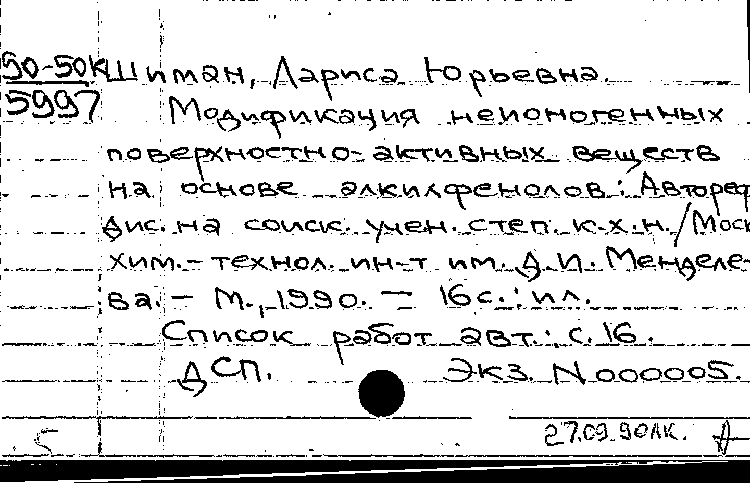 90-50К Шиман, Лариса Юрьевна.
5997
Модификация неионогенных
поверхностно-активных веществ
на основе алкилфенолов: Автореф
дис. на соиск. учен. степ. к.х.н. / Моск
хим.-технол. ин-т им. Д.И. Менделе-
ва. – М., 1990. – 16 с.: ил.
Список работ авт.: с. 16.
ДСП. Экз. N 000005.
5 27.09.90 ЛК.